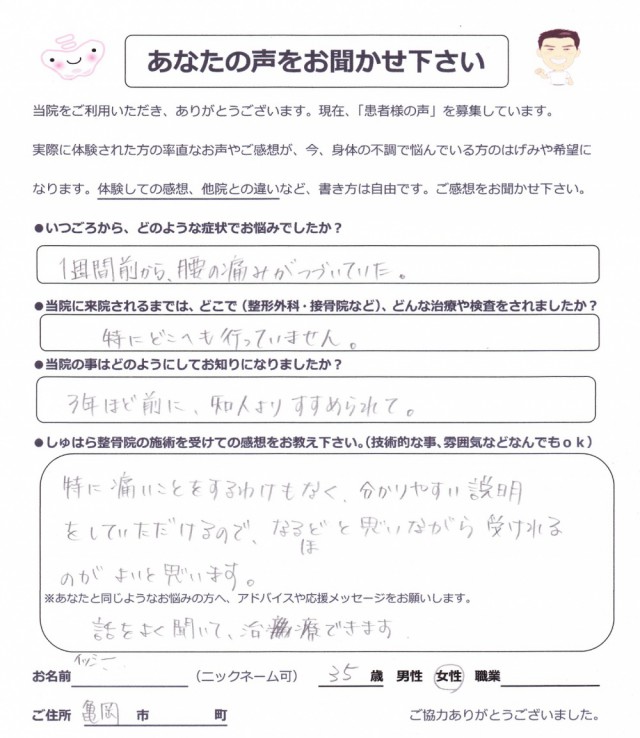 あなたの声をお聞かせ下さい
当院をご利用いただき、ありがとうございます。現在、「患者様の声」を募集しています。
実際に体験された方の率直なお声やご感想が、今、身体の不調で悩んでいる方のはげみや希望に
なります。体験しての感想、他院との違いなど、書き方は自由です。ご感想をお聞かせ下さい。
●いつごろから、どのような症状でお悩みでしたか？
1週間前から、腰の痛みがつづいていた。
●当院に来院されるまでは、どこで（整形外科・接骨院など）、どんな治療や検査をされましたか？
特にどこへも行っていません。
●当院の事はどのようにしてお知りになりましたか？
3年ほど前に、知人よりすすめられて。
●しゅはら整骨院の施術を受けての感想をお教え下さい。（技術的な事、雰囲気などなんでもｏｋ）
特に痛いことをするわけもなく、分かりやすい説明
をしていただけるので、なるほどと思いながら受けれる
のがよいと思います。
※あなたと同じようなお悩みの方へ、アドバイスや応援メッセージをお願いします。
話をよく聞いて、治療できます
お名前 イッシー （ニックネーム可） 35 歳 男性 女性 職業
ご住所 亀岡 市 町 ご協力ありがとうございました。